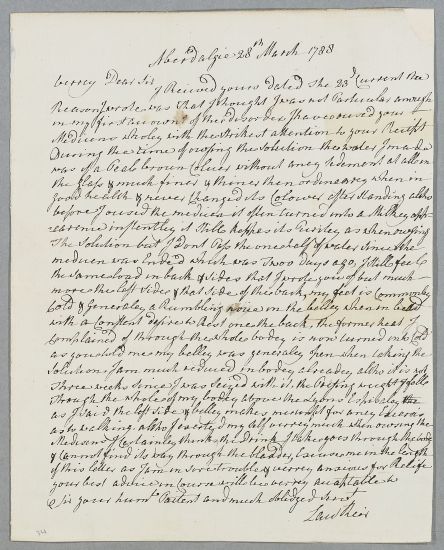 Aberdalgie 28th March 1788
verrey Dear Sir
I Received yours dated the 23d Current the
Reason I wrote was that I thought I was not Particular anough
in my first account of the disorder I have ceused your
Medicine wholey with the strikest attention to your Receipt
During the time of owsing the Solution the water I made
was of a Peale brown Coluer without aney Sediment at all in
the Glass & much finer & thiner then ordinarey when in
good health & never Changed its Colower after standing altho
before I oused the medicen it often turned into a Milkey app
earence instently it Still keppes its Pureley as when owsing
The Solution but I Dont Piss the one half of water since the
medicen was Ended which was twoo Days ago, I still feele
the same load in back & sides that I wrote you of but much
more the left Side & that Side of the back, my feet is Commonley
Cold & Generaley a Rumbling noise in the belley when in bedd
with a Constent desire to Rest one the back, the former heat I
Complained of through the whole bodey is now turned into Cold
as you told me my belley was generaley open when taking the
Solution I am much reduced in bodey alreadey, altho it is not
Three weeks since I was Seized with it. the Pressing weight I feele
through the whole of my bodey above the Lyons Especialey
as I said the left Side & belley makes me unfit for aney Exercise
as to walking altho I exerted my self verrey much when owsing the
Medicen I Certainley think the Drink I take goes through the body
& Cannot find its way through the bladder, Excuse me in the length
of this letter as I am in sore trouble & verrey anxious for Relife
your best advice in Course will be verrey aceptable to
Sir your humle Patient and much obliedged servt
Law Reid